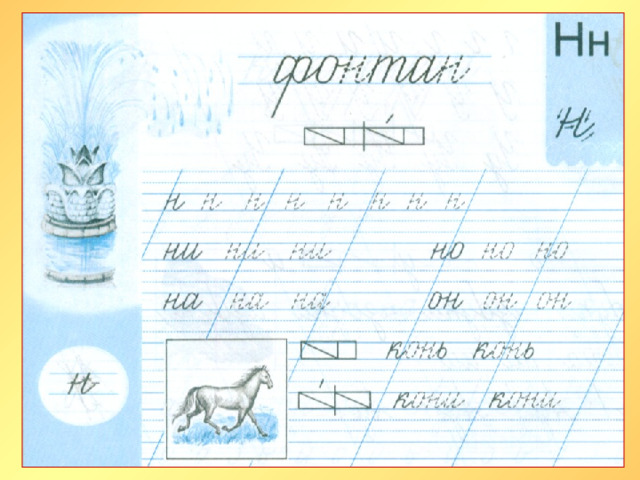 Нн
фонтан
Н
н н н н н н н н
ни ни ни но но но
на на на он он он
конь конь
н
кони кони